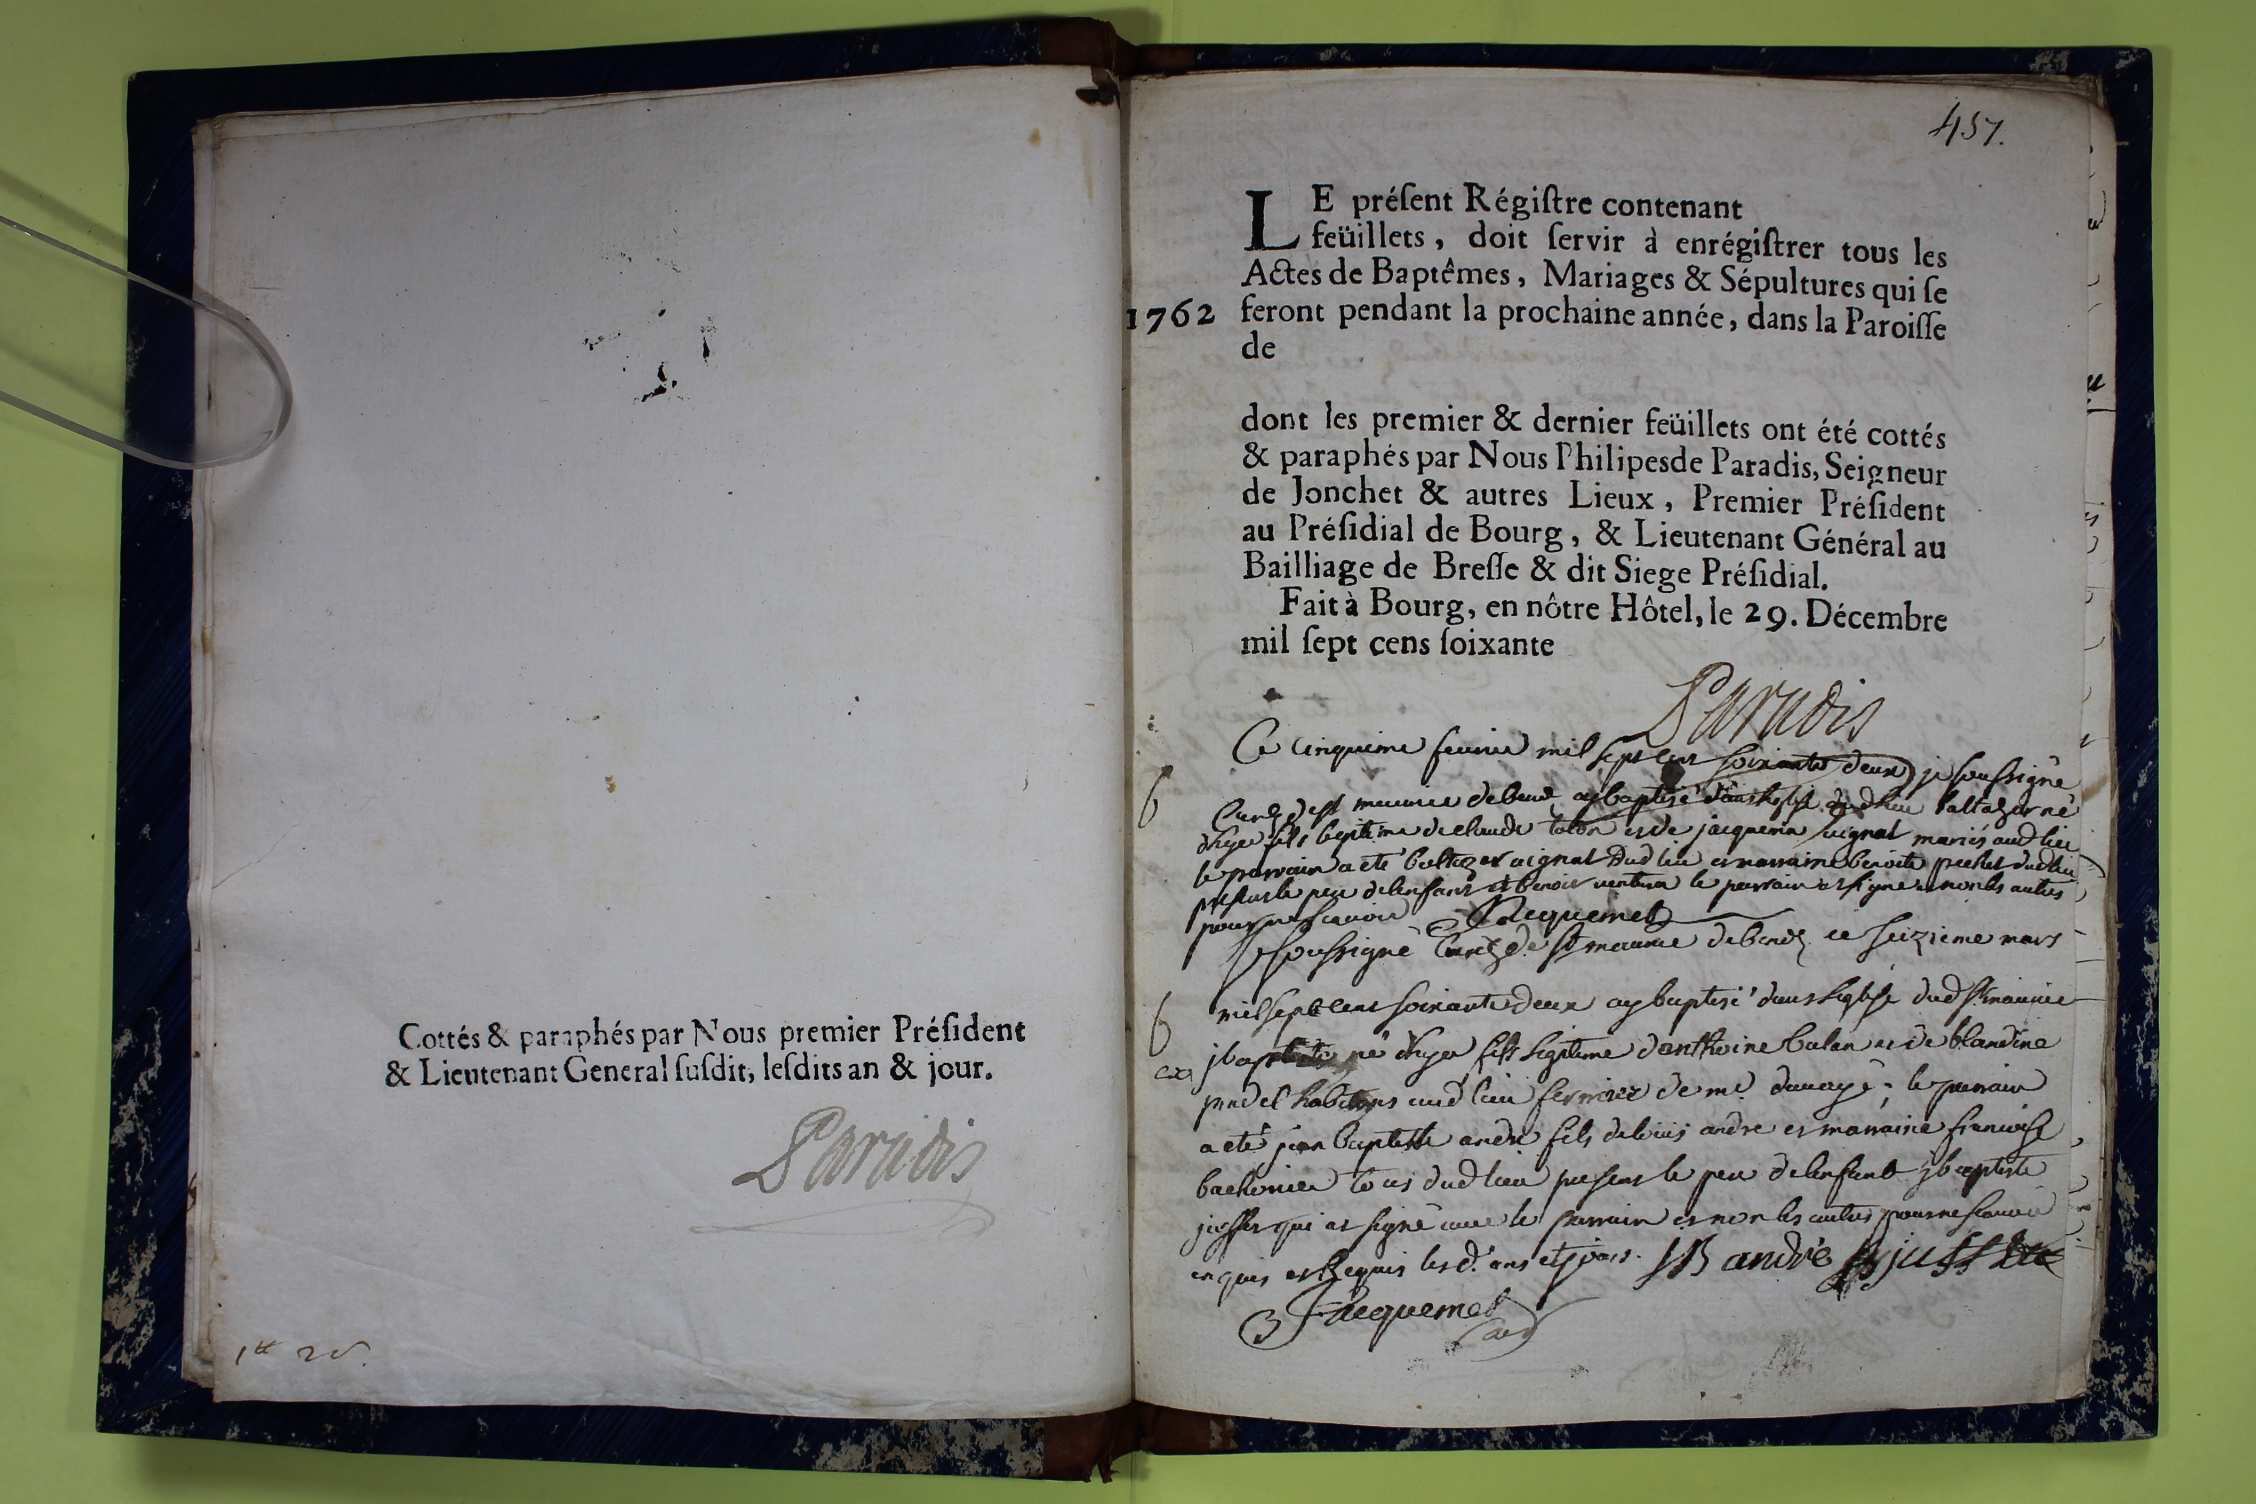 Cottés & paraphés par Nous premier Préſident
& Lieutenant General ſuſdit, leſdits an & jour.
Paradis
457.
LE préſent Régiſtre contenant
feüillets, doit ſervir à enrégiſtrer tous les
Actes de Baptêmes, Mariages & Sépultures qui ſe
1762 feront pendant la prochaine année, dans la Paroiſſe
de
dont les premier & dernier feüillets ont été cottés
& paraphés par Nous Philipes de Paradis, Seigneur
de Jonchet & autres Lieux, Premier Préſident
au Préſidial de Bourg, & Lieutenant Général au
Bailliage de Breſſe & dit Siege Préſidial.
Fait à Bourg, en nôtre Hôtel, le 29. Décembre
mil ſept cens ſoixante
Paradis
Ce cinquieme feurier mil sept cens soixante deux je soussigné
Curé de st maurice ay baptisé baltazar né
dhyer fils legitime de claude et de jacquema mariés aud lieu
le parrain a eté baltazar dud lieu et marraine benoite dud lieu
le pere de lenfant et benoit le parrain et signé et non les autres
pour ne scavoir Jacquemet
b je soussigné Curé de st maurice ce seizieme mars
b mil sept cens soixante deux ay baptisé dans leglise dud st maurice
jbaptiste né dhyer fils legitime danthoine et de blandine
habitans aud lieu fermier de mr le parrain
a eté jean baptiste andré fils de louis andre et marraine francoise
tous dud lieu presens le pere de lenfant jbaptiste
qui at signé avec le parrain et non les autres pour ne scavoir
enquis et Requis lesd. ans et jours. JB andré
Jacquemet
curé